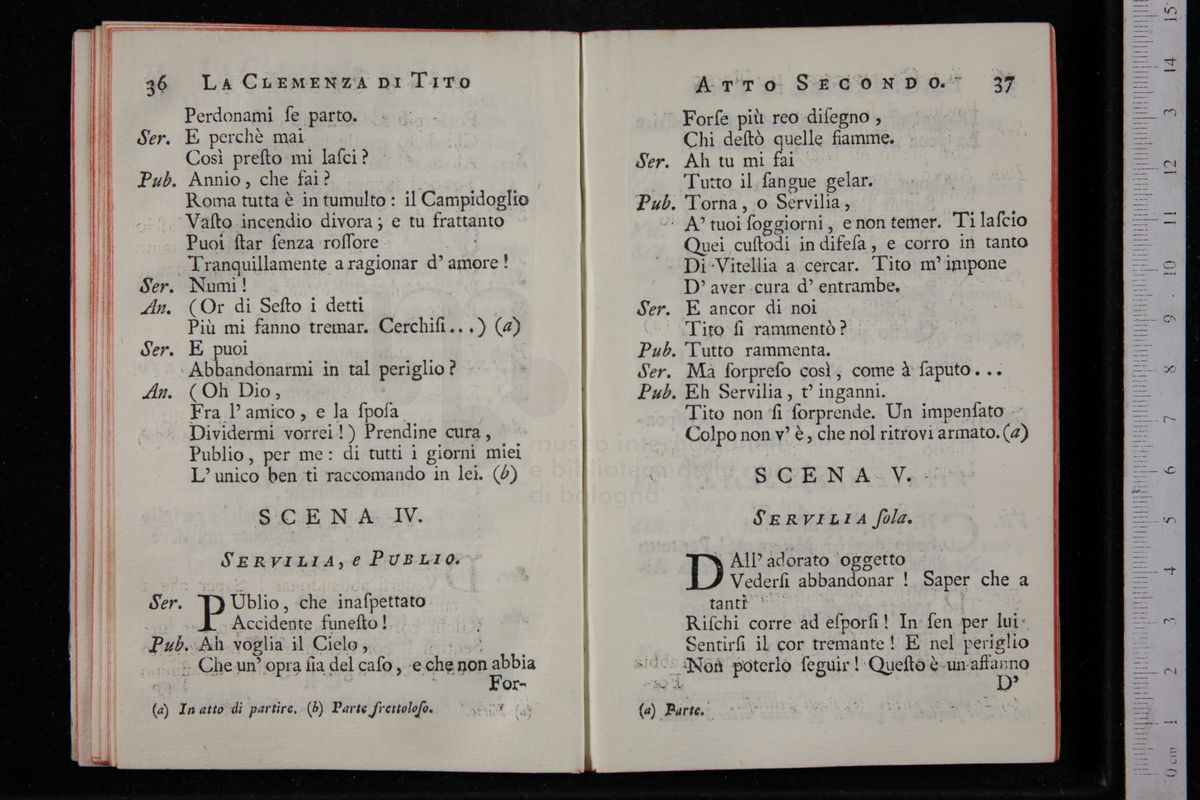 36 LA CLEMENZA DI TITO
Perdonami ſe parto.
Ser. E perchè mai
Così preſto mi laſci?
Pub. Annio, che fai?
Roma tutta è in tumulto: il Campidoglio
Vaſto incendio divora; e tu frattanto
Puoi ſtar ſenza roſſore
Tranquillamente a ragionar d' amore!
Ser. Numi!
An. (Or di Seſto i detti
Più mi fanno tremar. Cerchiſi...) (a)
Ser. E puoi
Abbandonarmi in tal periglio?
An. (Oh Dio,
Fra l' amico, e la ſpoſa
Dividermi vorrei!) Prendine cura,
Publio, per me: di tutti i giorni miei
L' unico ben ti raccomando in lei. (b)
SCENA IV.
SERVILIA, e PUBLIO.
Ser. PUblio, che inaſpettato
Accidente funeſto!
Pub. Ah voglia il Cielo,
Che un' opra ſia del caſo, e che non abbia
For-
(a) In atto di partire. (b) Parte frettoloſo.
ATTO SECONDO. 37
Forſe più reo diſegno,
Chi deſtò quelle fiamme.
Ser. Ah tu mi fai
Tutto il ſangue gelar.
Pub. Torna, o Servilia,
A' tuoi ſoggiorni, e non temer. Ti laſcio
Quei cuſtodi in difeſa, e corro in tanto
Di Vitellia a cercar. Tito m' impone
D' aver cura d' entrambe.
Ser. E ancor di noi
Tito ſi rammentò?
Pub. Tutto rammenta.
Ser. Ma ſorpreſo così, come à ſaputo...
Pub. Eh Servilia, t' inganni.
Tito non ſi ſorprende. Un impenſato
Colpo non v' è, che nol ritrovi armato. (a)
SCENA V.
SERVILIA ſola.
DAll' adorato oggetto
Vederſi abbandonar! Saper che a
tanti
Riſchi corre ad eſporſi! In ſen per lui
Sentirſi il cor tremante! E nel periglio
Non poterlo ſeguir! Queſto è un affanno
D'
(a) Parte.
museo internazionale
e biblioteca della
di bologna
0 cm 1 2 3 4 5 6 7 8 9 10 11 12 13 14 15